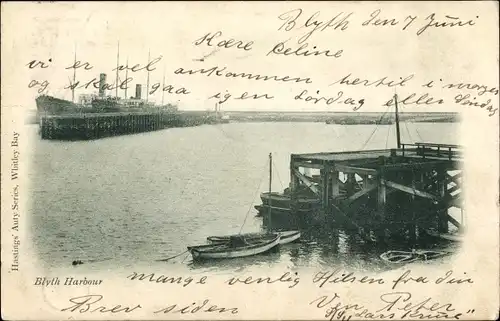 Blyth den 7 Juni
Kære Celine
vi er vel ankommen hertil i morges
og skal igen Lördag eller Søndag
Hastings' Auty Series, Whitley Bay
mange venlig Hilsen fra din
Ven Peter
Blyth Harbour
Brev siden
S/S Lars Kruse"